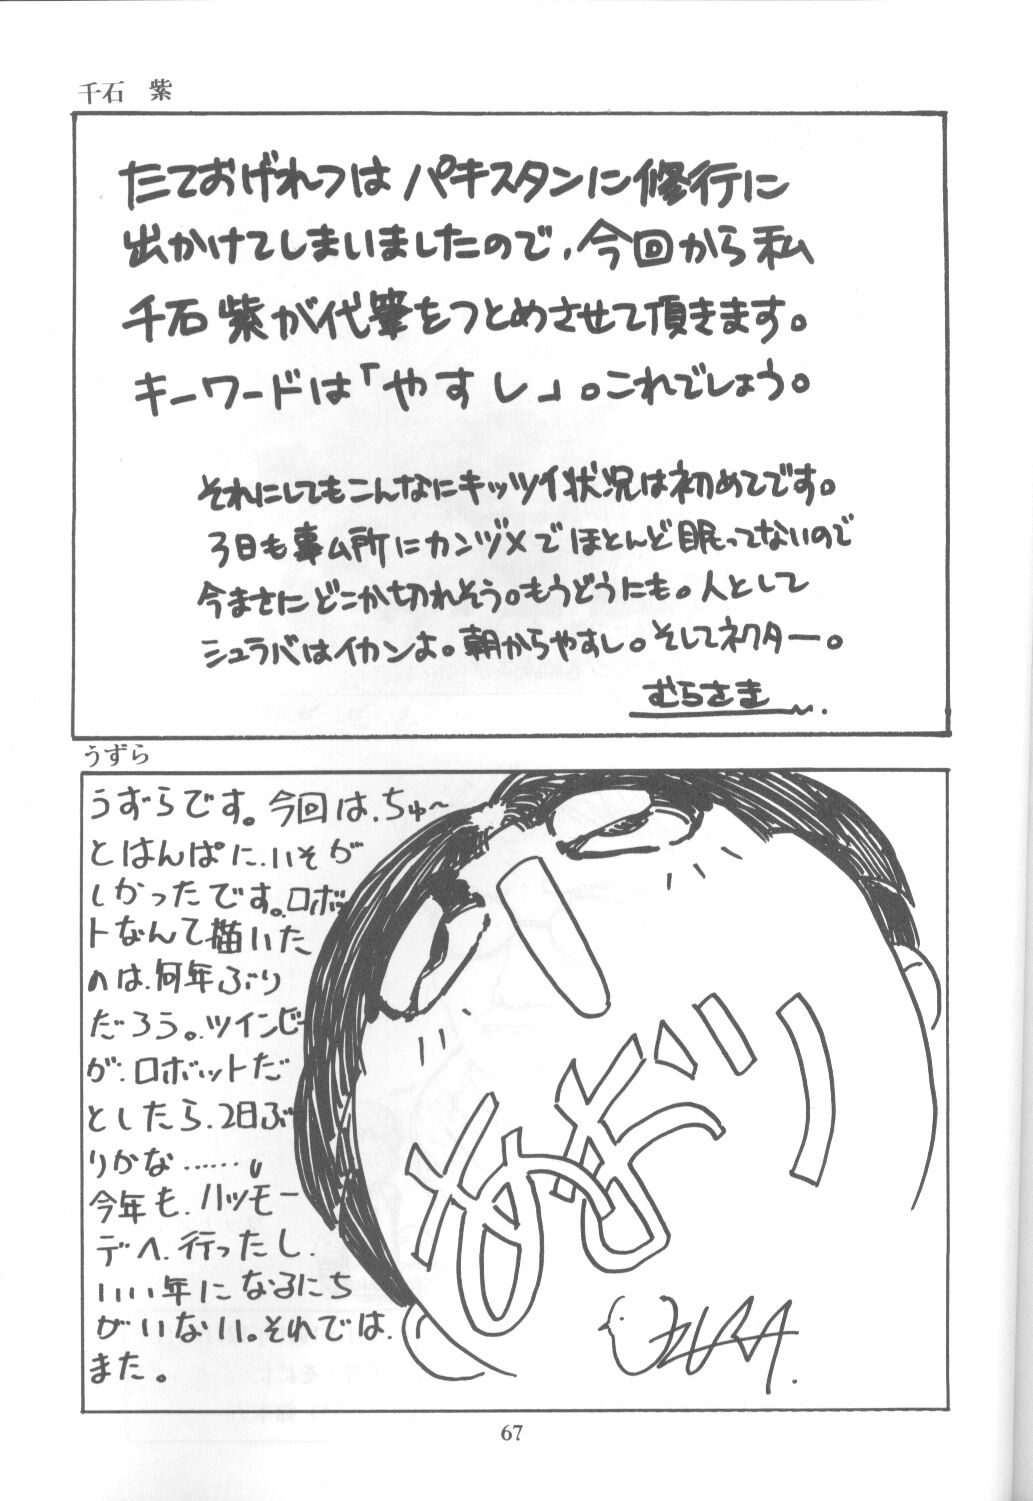 千石 紫
たておげれつは パキスタンに修行に
出かけてしまいましたので、今回から私
千石紫が代筆をつとめさせて頂きます。
キーワードは「やすし」。これでしょう。
それにしてもこんなにキッツイ状況は初めてです。
3日も事ム所にカンヅメでほとんど眠ってないので
今まさにどこか切れそう。もうどうにも。人として
シュラバはイカンよ。朝からやすし。そしてネクター。
むらさき
うずら
うずらです。今回は、ちゅ〜
とはんぱに、いそが
しかったです。ロボッ
トなんて描いた
のは、何年ぶり
だろう。ツインビー
が、ロボットだ
としたら、2日ぶ
りかな……。
今年も、ハツモー
デへ、行ったし、
いい年になるにち
がいない。それでは、
また。
UZURA.
67